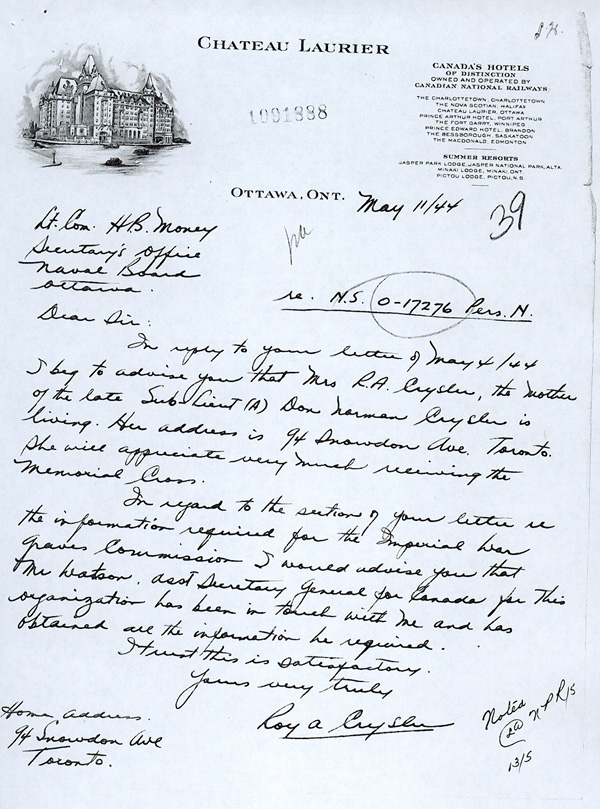 CHATEAU LAURIER
CANADA'S HOTELS
OF DISTINCTION
OWNED AND OPERATED BY
CANADIAN NATIONAL RAILWAYS
THE CHARLOTTETOWN, CHARLOTTETOWN
THE NOVA SCOTIAN, HALIFAX
CHATEAU LAURIER, OTTAWA
PRINCE ARTHUR HOTEL, PORT ARTHUR
THE FORT GARRY, WINNIPEG
PRINCE EDWARD HOTEL, BRANDON
THE BESSBOROUGH, SASKATOON
THE MACDONALD, EDMONTON
SUMMER RESORTS
JASPER PARK LODGE, JASPER NATIONAL PARK, ALTA.
MINAKI LODGE, MINAKI, ONT.
PICTOU LODGE, PICTOU, N.S
OTTAWA, ONT. May 11/44
39
Lt. Com. H.B. Money
Secretary's Office
Naval Board
Ottawa.
re. N.S. 0-17276 Pers. N.
Dear Sir:
In reply to your letter of May 4/44
I beg to advise you that Mrs R.A. Crysler, the mother
of the late Sub-Lieut (A) Don Norman Crysler is
living. Her address is 94 Snowdon Ave. Toronto.
She will appreciate very much receiving the
Memorial Cross.
In regard to the section of your letter re
the information required for the Imperial War
Graves Commission I would advise you that
Mr Watson, asst Secretary General for Canada for this
organization has been in touch with me and has
obtained all the information he required.
I trust this is satisfactory.
Yours very truly
Roy A Crysler
Home address.
94 Snowdon Ave
Toronto.
Noted
13/5